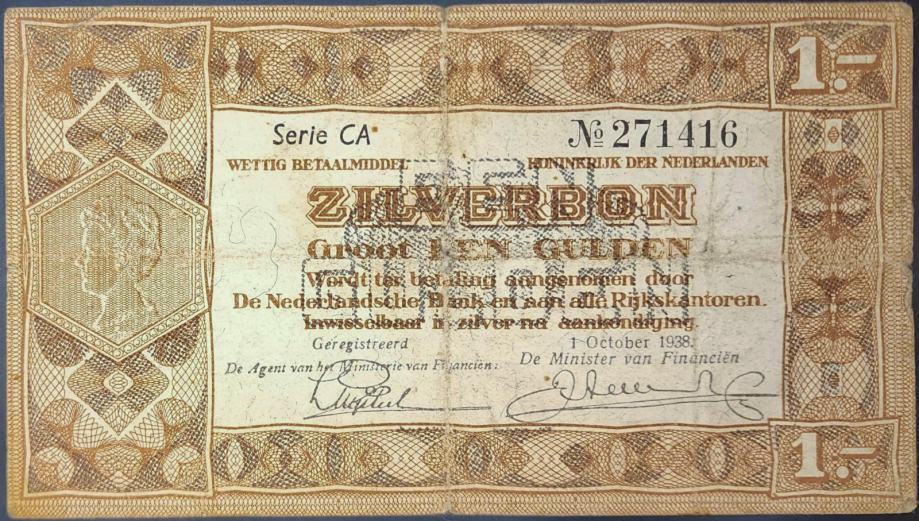 1.-
Serie CA № 271416
WETTIG BETAALMIDDEL KONINKRIJK DER NEDERLANDEN
ZILVERBON
Groot EEN GULDEN
Wordt ter betaling aangenomen door
De Nederlandsche Bank en aan alle Rijkskantoren.
Inwisselbaar in zilver na aankondiging.
Geregistreerd 1 October 1938.
De Agent van het Ministerie van Financiën: De Minister van Financiën
1.-